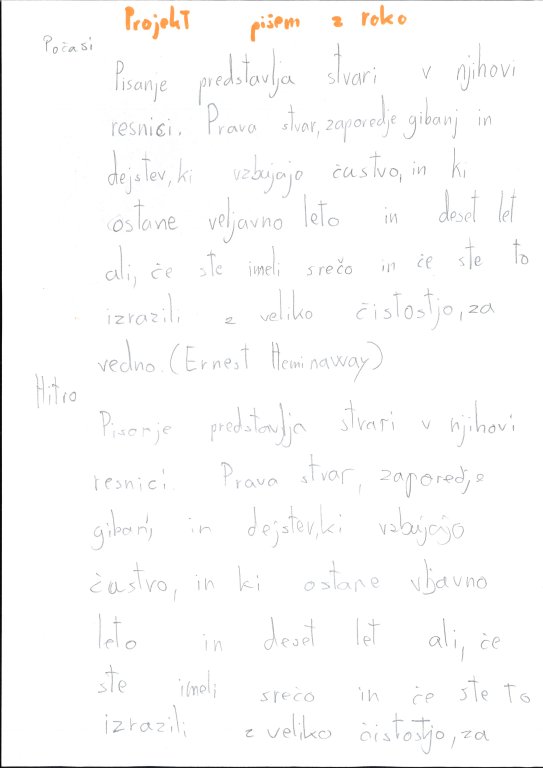 Projekt pišem z roko
Počasi
Pisanje predstavlja stvari v njihovi
resnici. Prava stvar, zaporedje gibanj in
dejstev, ki vzbujajo čustvo, in ki
ostane veljavno leto in deset let
ali, če ste imeli srečo in če ste to
izrazili z veliko čistostjo, za
vedno. (Ernest Heminaway)
Hitro
Pisanje predstavlja stvari v njihovi
resnici. Prava stvar, zaporedje
gibanj in dejstev, ki vzbujajo
čustvo, in ki ostane vljavno
leto in deset let ali, če
ste imeli srečo in če ste to
izrazili z veliko čistostjo, za